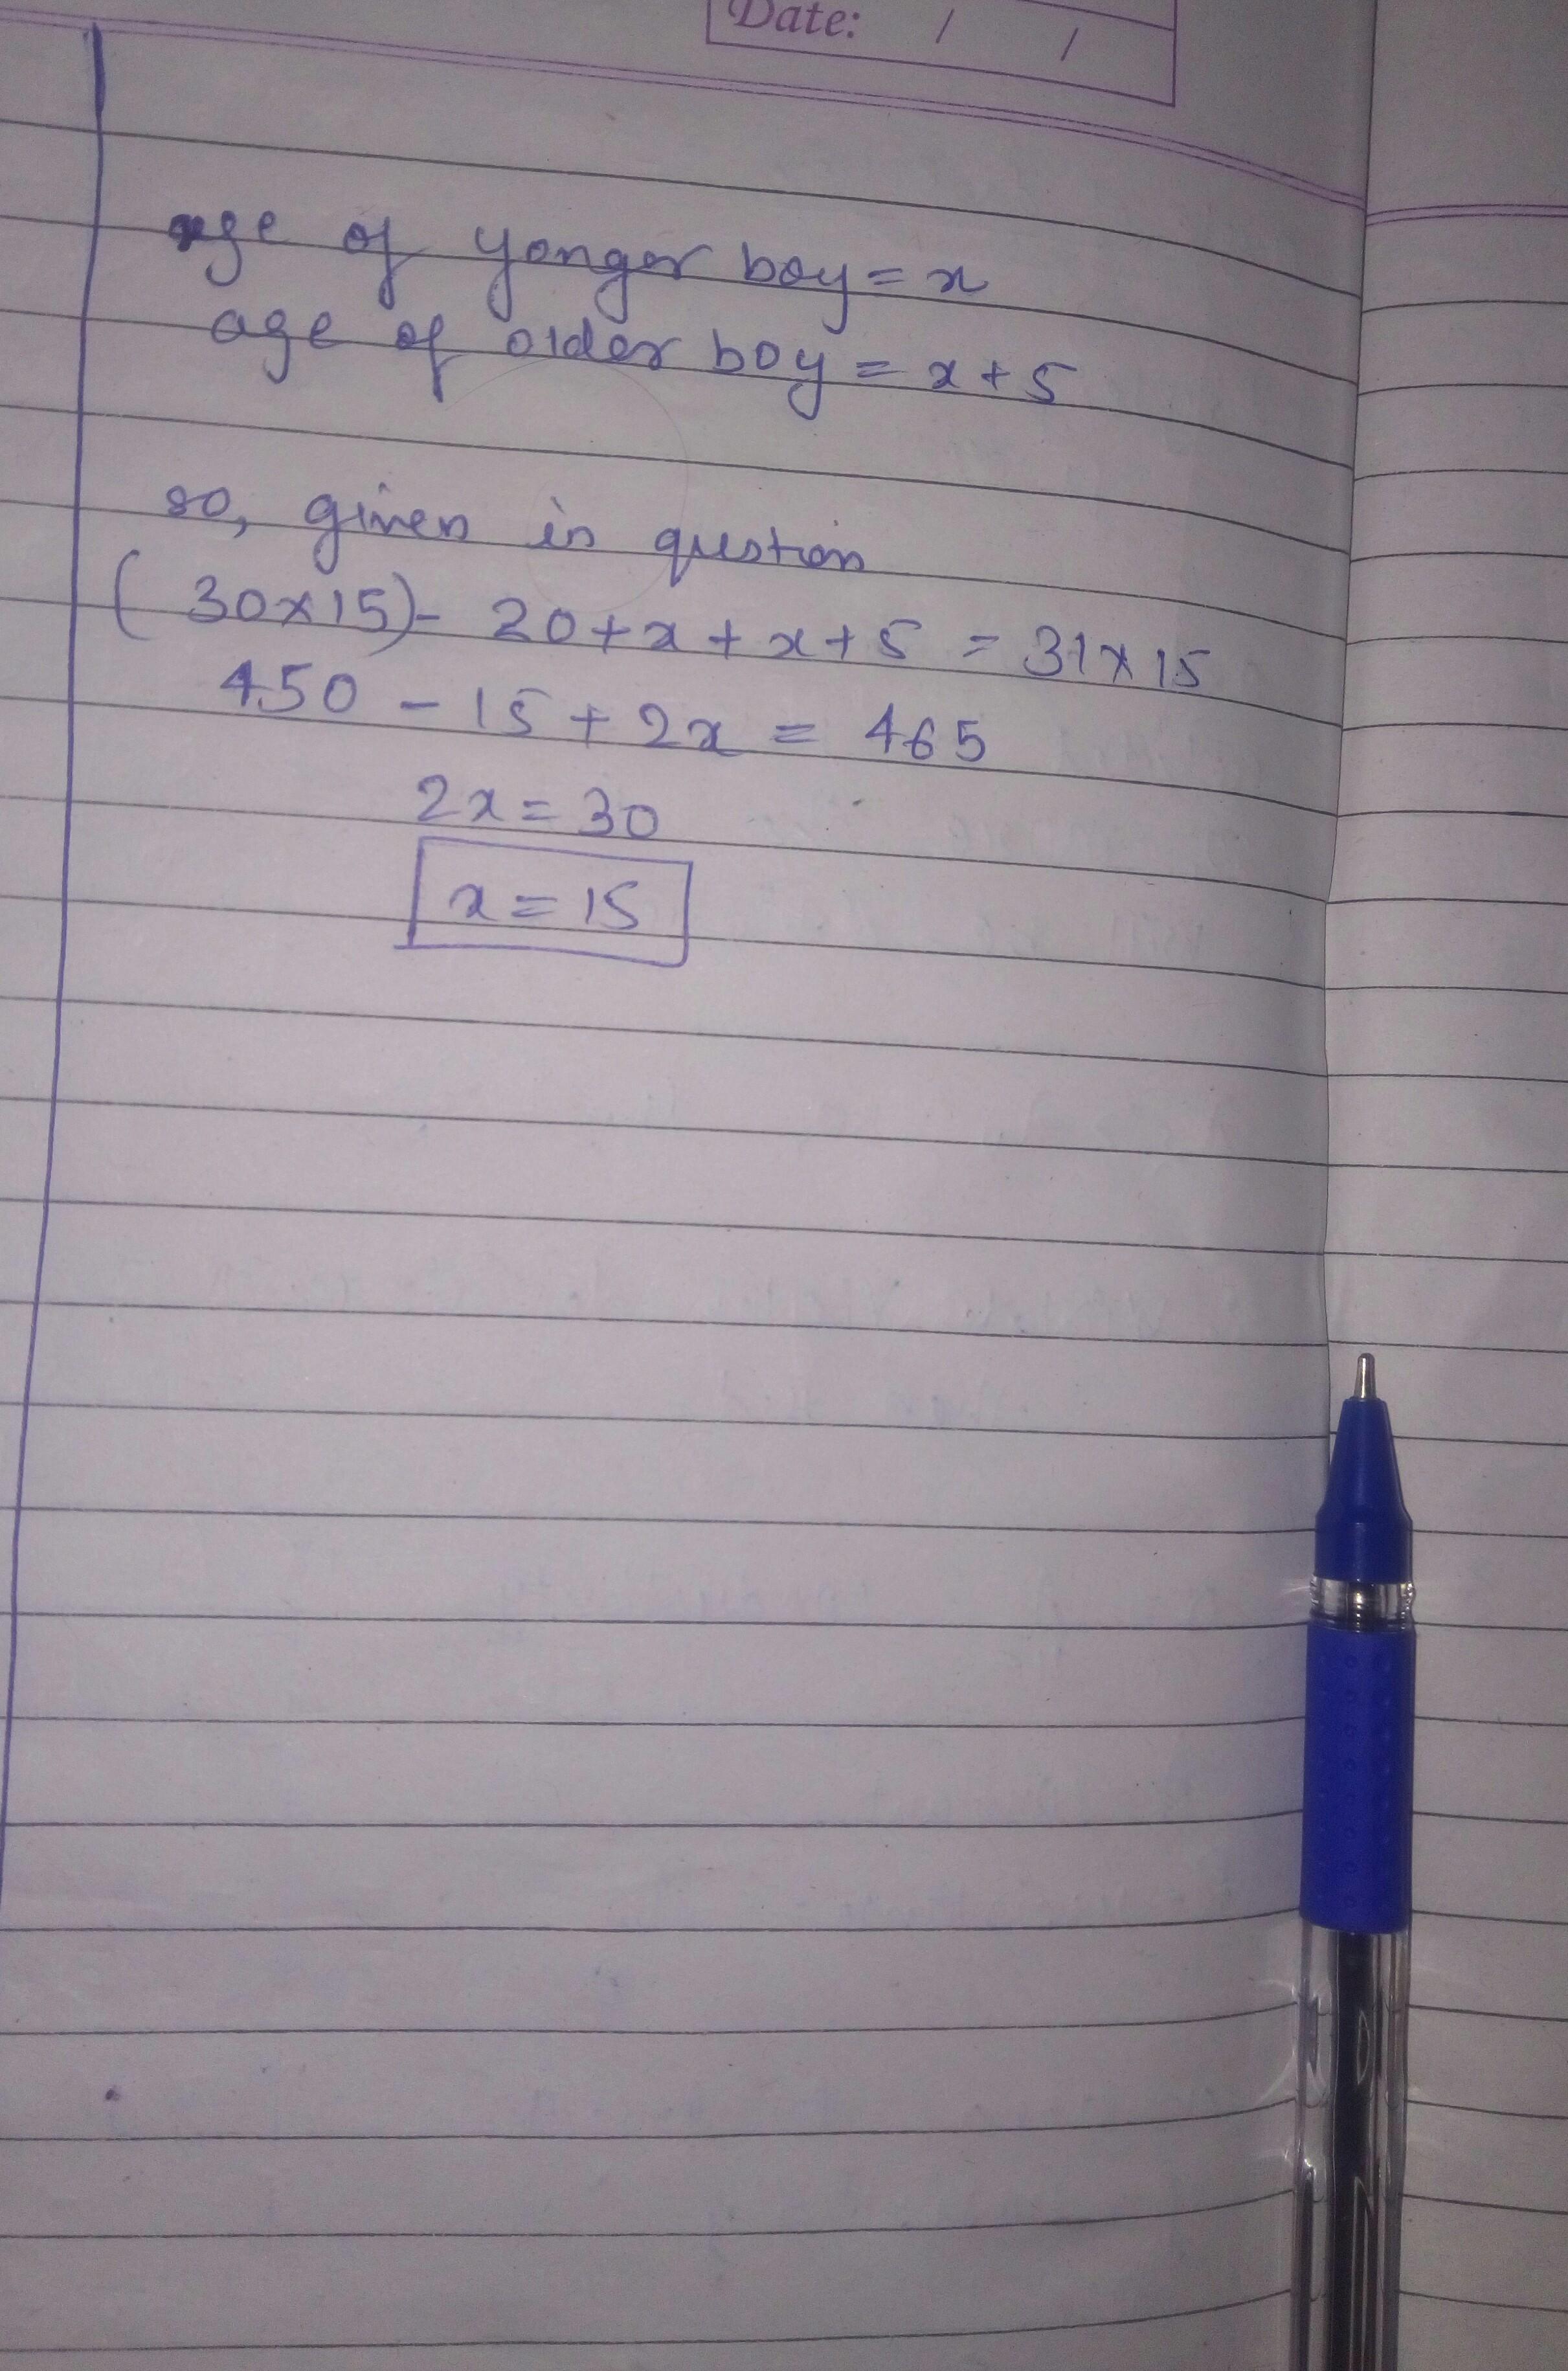 Date: / /
age of yonger boy = x
age of older boy = x + 5
so, given in question
(30×15) - 20 + x + x + 5 = 31 × 15
450 - 15 + 2x = 465
2x = 30
x = 15